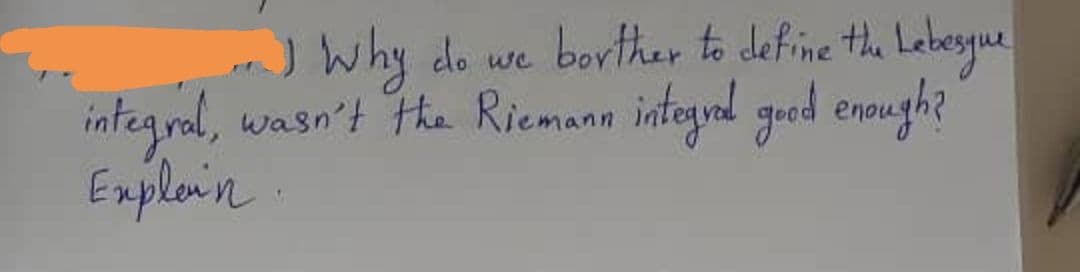 ) Why do we borther to define the Lebesgue
integral, wasn't the Riemann integral good enough?
Explain.